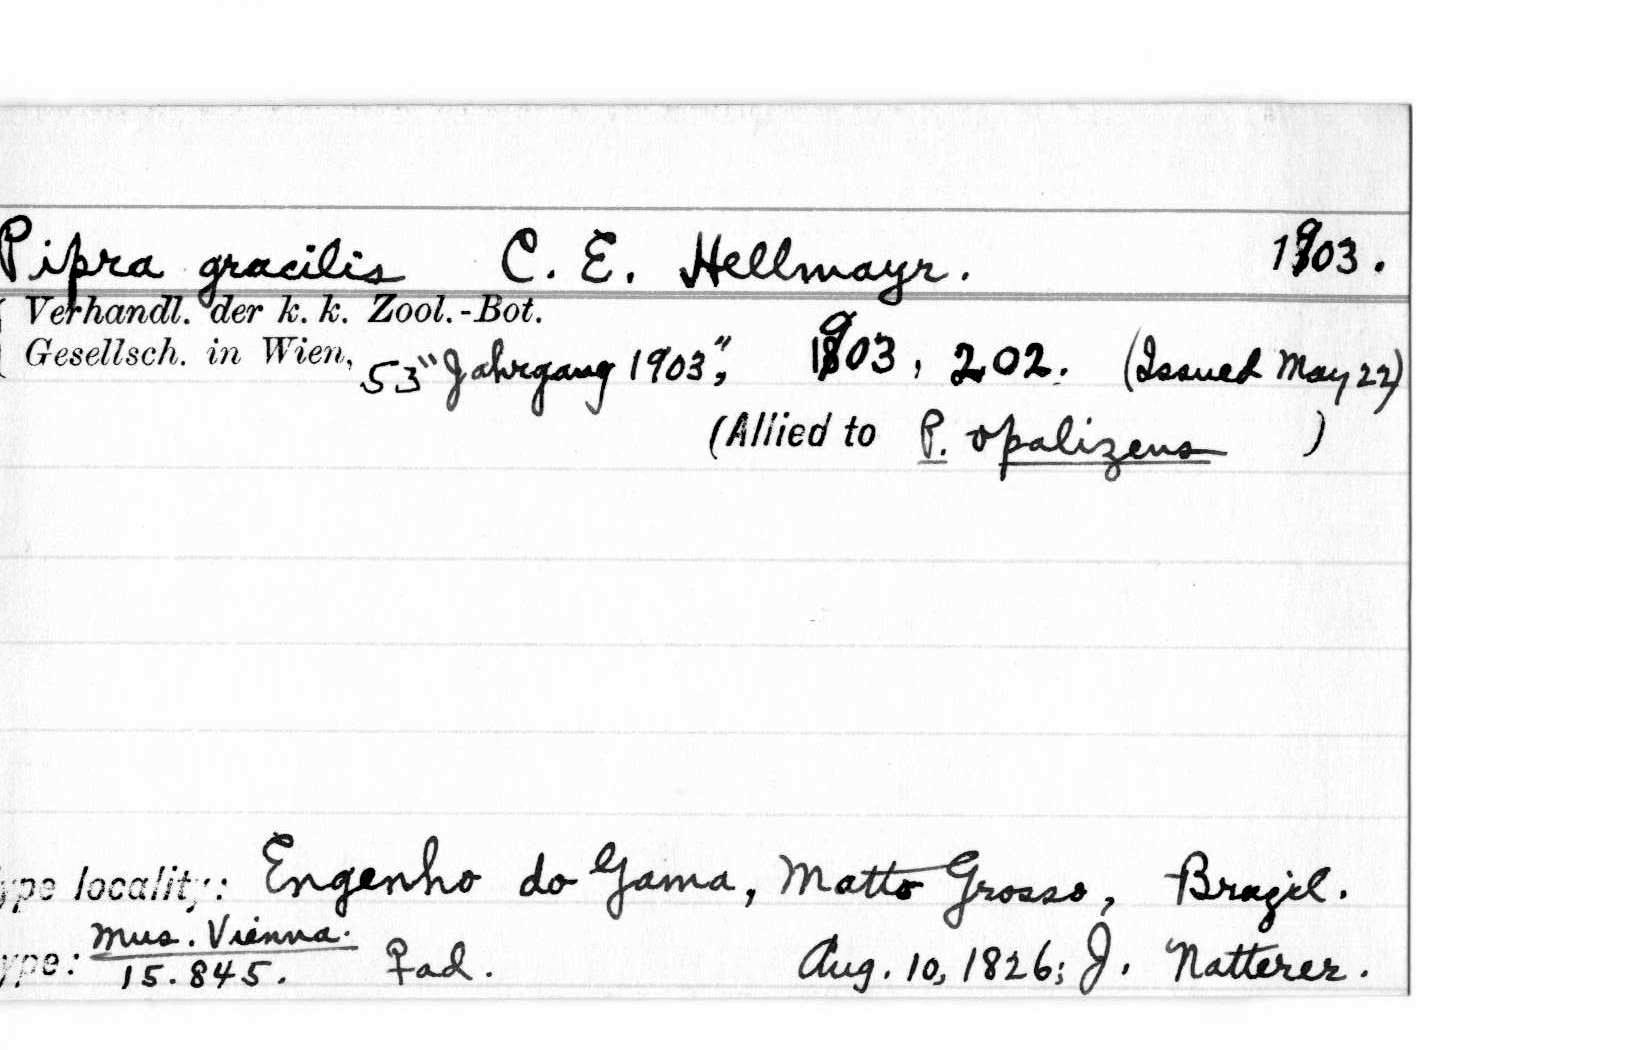 Pipra gracilis C. E. Hellmayr. 1903.
Verhandl. der k. k. Zool.-Bot.
Gesellsch. in Wien, 53 "Jahrgang 1903", 1903, 202. (Issued May 22)
(Allied to P. opalizens )
ype locality: Engenho do Gama, Matto Grosso, Brazil.
ype: Mus. Vienna. 15.845. ♀ad. Aug. 10, 1826; J. Natterer.